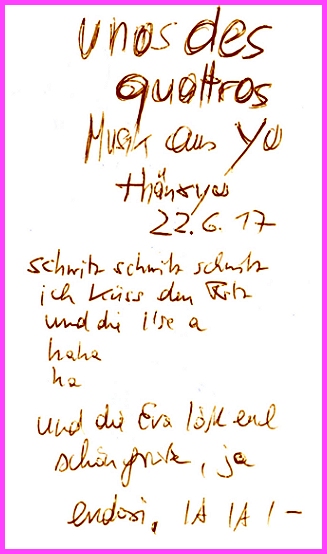 unos des
quattros
Musik aus yo
thänsyou
22.6.17
schwitz schwitz schwitz
ich küss den Fritz
und die ilse a
haha
ha
und die Eva läßt
schön grüße, ja
endosi, IA IA I -